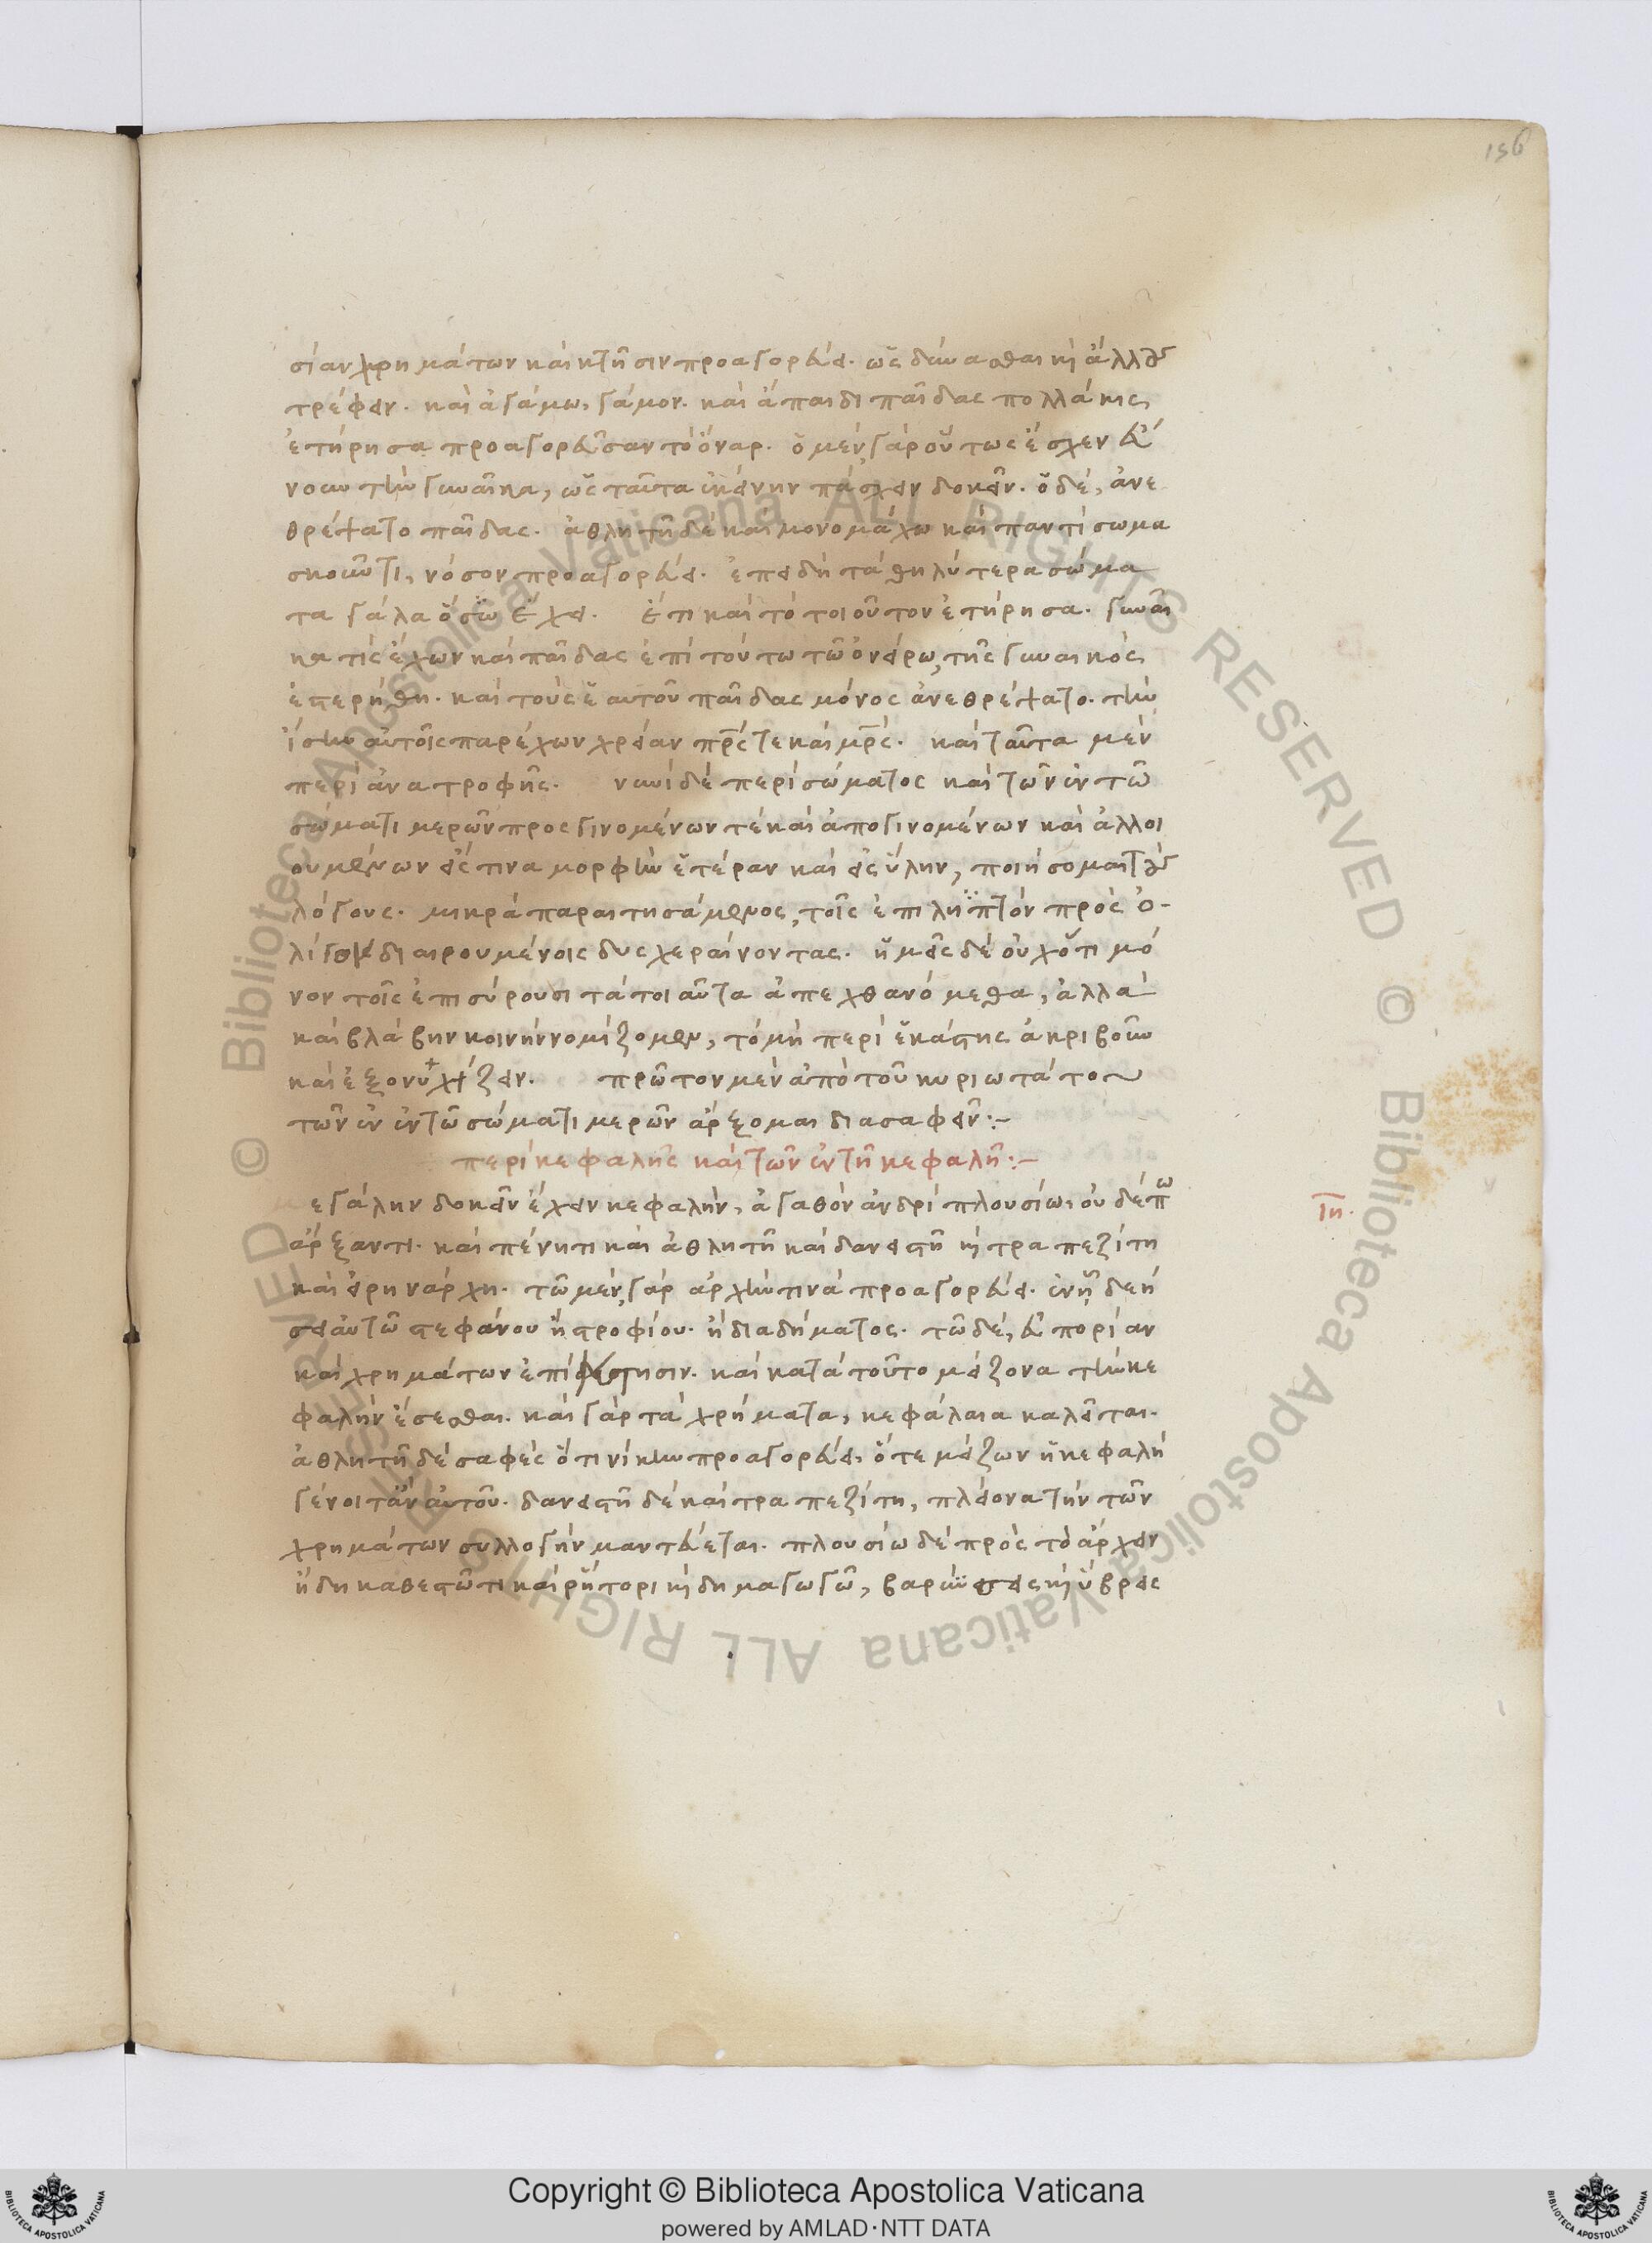 156
σίαν χρημάτων καὶ κτῆσιν προαγορεύει. ὡς δύνασθαι κὶ ἄλλους
τρέφειν. καὶ ἀγάμω, γάμον. καὶ ἄπαιδι παῖδας πολλάκις,
ἐτήρησα προαγορεῦσαν τὸ ὄναρ. ὁ μὲν γὰρ οὕτως ἔσχεν εὔ
νουν τὴν γυναῖκα, ὡς ταῦτα ἐκείνην πάσχειν δοκεῖν. ὁ δὲ, ἀνε
θρέψατο παῖδας. ἀθλητῆ δὲ καὶ μονομάχω καὶ παντὶ σωμα
σκοῦντι, νόσον προαγορεύει. ἐπειδὴ τὰ θηλύτερα σώμα
τα γάλα ὅσω ἔχει. ἔτι καὶ τὸ τοιοῦτον ἐτήρησα. γυναῖ
κα τὶς ἔχων καὶ παῖδας ἐπὶ τούτω τῶ ὀνείρω, τῆς γυναικὸς,
ἐστερήθη. καὶ τοὺς ἑαυτοῦ παῖδας μόνος ἀνεθρέψατο. τὴν
ἴσην αὐτοῖς παρέχων χρείαν πρς τε καὶ μρς. καὶ ταῦτα μὲν
περὶ ἀνατροφῆς. νυνὶ δὲ περὶ σώματος καὶ τῶν ἐν τῶ
σώματι μερῶν προσγινομένων τὲ καὶ ἀπογινομένων καὶ ἀλλοι
ουμένων εἴς τινα μορφὴν ἑτέραν καὶ εἰς ὕλην, ποιήσομαι τοὺς
λόγους. μικρὰ παραιτησάμενος, τοῖς ἐπιληπτὸν πρὸς ὀ-
λίγον διαιρουμένοις δυσχεραίνοντας. ἡμεῖς δὲ οὐχ ὅτι μό
νον τοῖς ἐπισύρουσι τὰ τοιαῦτα ἀπεχθανόμεθα, ἀλλὰ
καὶ βλάβην κοινὴν νομίζομεν, τὸ μὴ περὶ ἑκάστης ἀκριβοῦν
καὶ ἐξονυχίζειν. πρῶτον μὲν ἀπὸ τοῦ κυριωτάτου
τῶν ἐν ἐν τῶ σώματι μερῶν ἄρξομαι διασαφεῖν :-
περὶ κεφαλῆς καὶ τῶν ἐν τῆ κεφαλῆ :-
εγάλην δοκεῖν ἔχειν κεφαλὴν, ἀγαθὸν ἀνδρὶ πλουσίω, οὐδέπω
ιη.
ἄρξαντι. καὶ πένητι καὶ ἀθλητῆ καὶ δανειστῆ κὶ τραπεζίτη
καὶ εἰρηνάρχη. τῶ μὲν γὰρ ἀρχὴν τινὰ προαγορεύει. ἐν ἧ δεή
σει αὐτῶ στεφάνου ἢ στροφίου. ἢ διαδήματος. τῶ δὲ, εὐπορίαν
καὶ χρημάτων ἐπίκτησιν. καὶ κατὰ τοῦτο μείζονα τὴν κε
φαλὴν ἔσεσθαι. καὶ γὰρ τὰ χρήματα, κεφάλαια καλεῖται.
ἀθλητῆ δὲ σαφὲς ὅτι νίκην προαγορεύει, ὅτε μείζων ἡ κεφαλὴ
γένοιτ ἂν αὐτοῦ. δανειστῆ δὲ καὶ τραπεζίτη, πλείονα τὴν τῶν
χρημάτων συλλογὴν μαντεύεται. πλουσίω δὲ πρὸς τὸ ἄρχειν
ἤδη καθεστῶτι καὶ ῥήτορι κὶ δημαγωγῶ, βαρύνσεις κὶ ὕβρεις